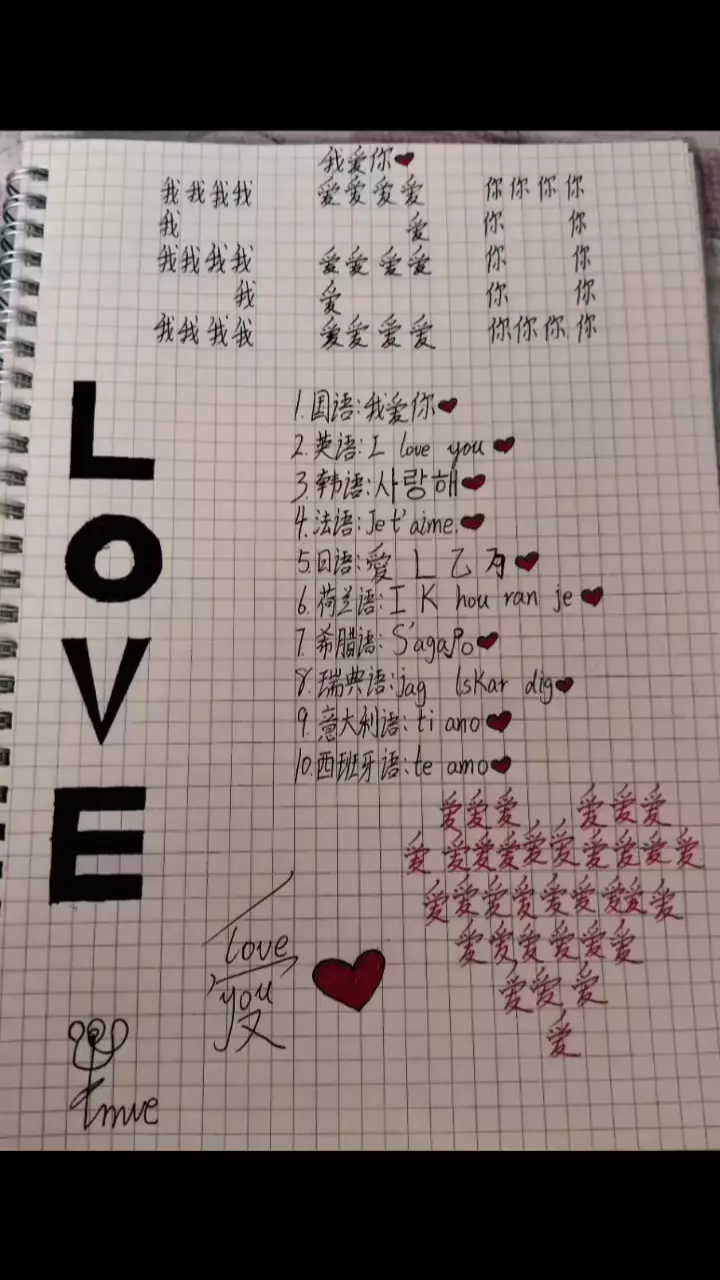 我爱你
我我我我 爱爱爱爱 你你你你
我 爱 你 你
我我我我 爱爱爱爱 你 你
我 爱 你 你
我我我我 爱爱爱爱 你你你你
LOVE
1.国语:我爱你
2.英语:I love you
3.韩语:사랑해
4.法语:Je t'aime.
5.日语:爱 L 乙 为
6.荷兰语:I K hou ran je
7.希腊语:S'agapo
8.瑞典语:jag lskar dig
9.意大利语:ti ano
10.西班牙语:te amo
爱爱爱 爱爱爱
爱爱爱爱爱爱爱爱爱爱
爱爱爱爱爱爱爱爱爱
爱爱爱爱爱爱
爱爱爱
爱
love
you